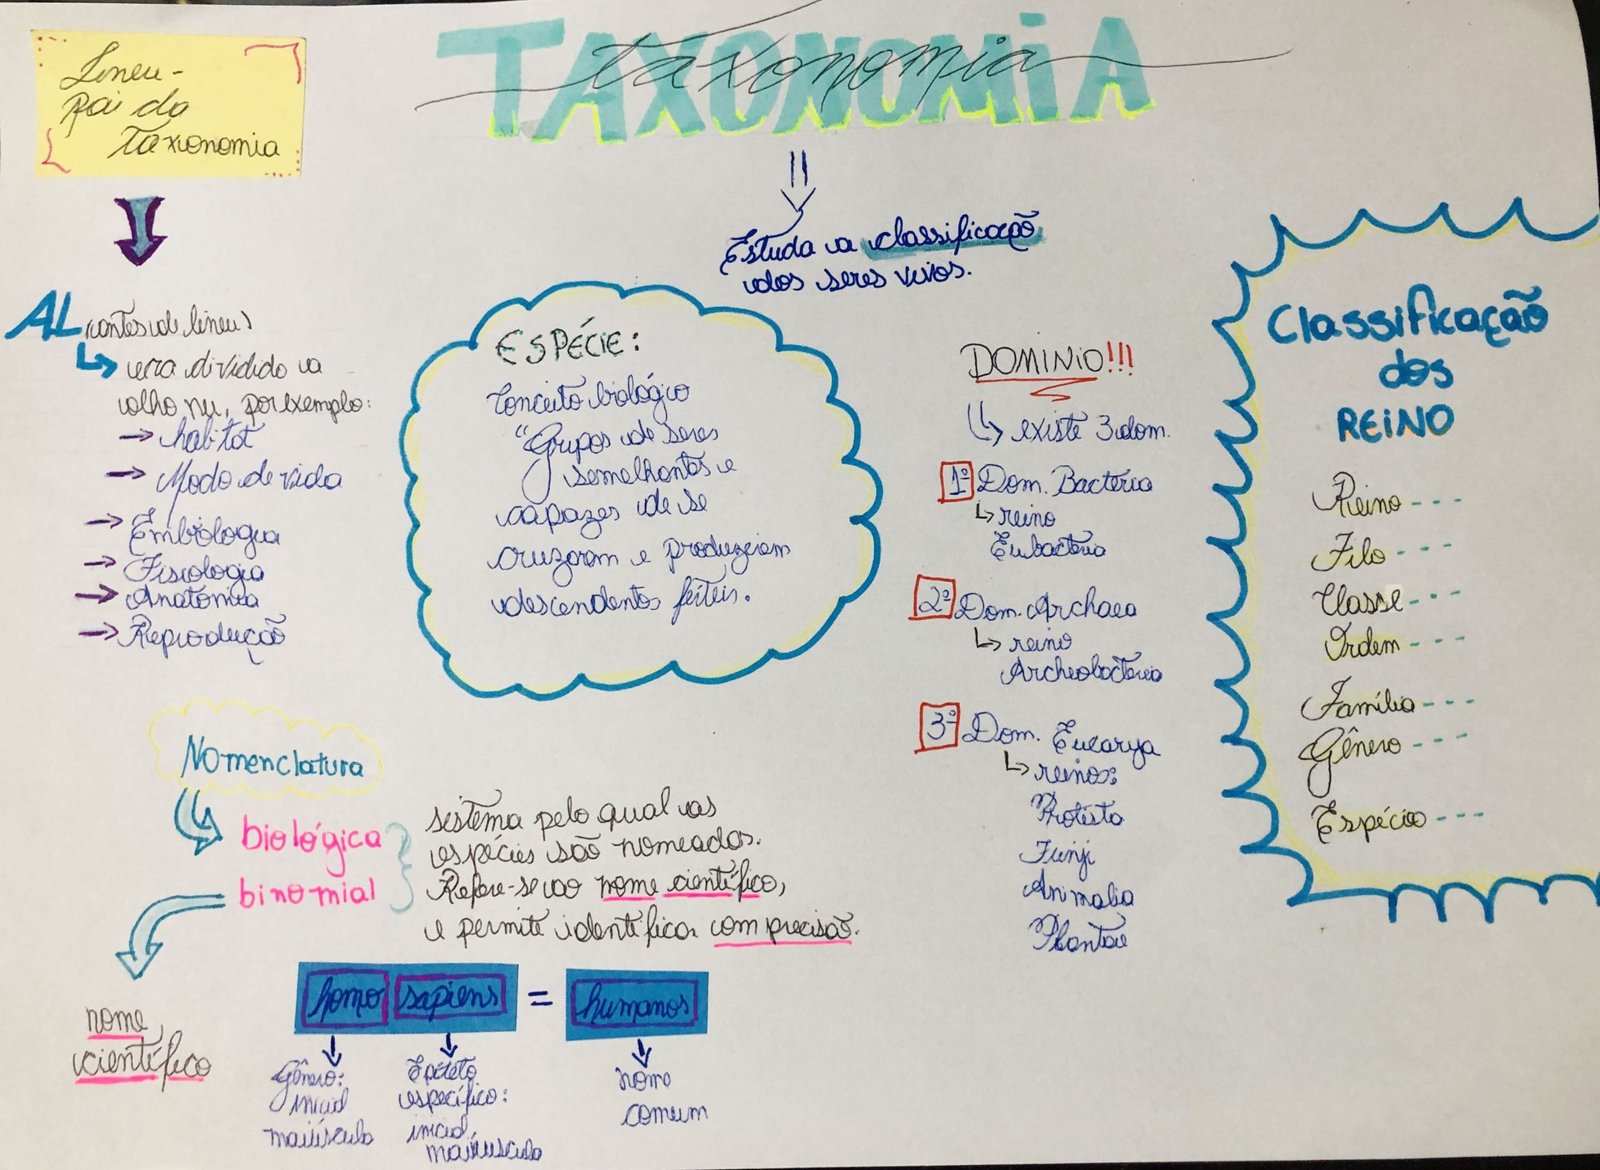 TAXONOMIA
taxonomia
Lineu-
pai da
Taxonomia
Estuda a classificação
dos seres vivos.
AL (antes de lineu)
era dividido a
olho nu, por exemplo:
habitat
Modo de vida
Embiologia
Fisiologia
Anatomia
Reprodução
ESPÉCIE:
Conceito biológico
"Grupos de seres
semelhantes e
capazes de se
cruzarem e produzeiem
descendentes férteis.
DOMINIO!!!
existe 3 dom.
1º Dom. Bacteria
reino
Eubacteria
2º Dom. Archaea
reino
Archeobacteria
3º Dom. Eucarya
reinos:
Protista
Funji
Animalia
Plantae
Classificação
dos
REINO
Reino ---
Filo ---
Classe ---
Ordem ---
Família ---
Gênero ---
Espécie ---
Nomenclatura
biológica
binomial
sistema pelo qual as
espécies são nomeados.
Refere-se ao nome científico,
e permite identificar com precisão.
nome
científico
homo sapiens = humanos
Gênero:
inicial
maiúscula
Epíteto
específico:
inicial
nome
comum